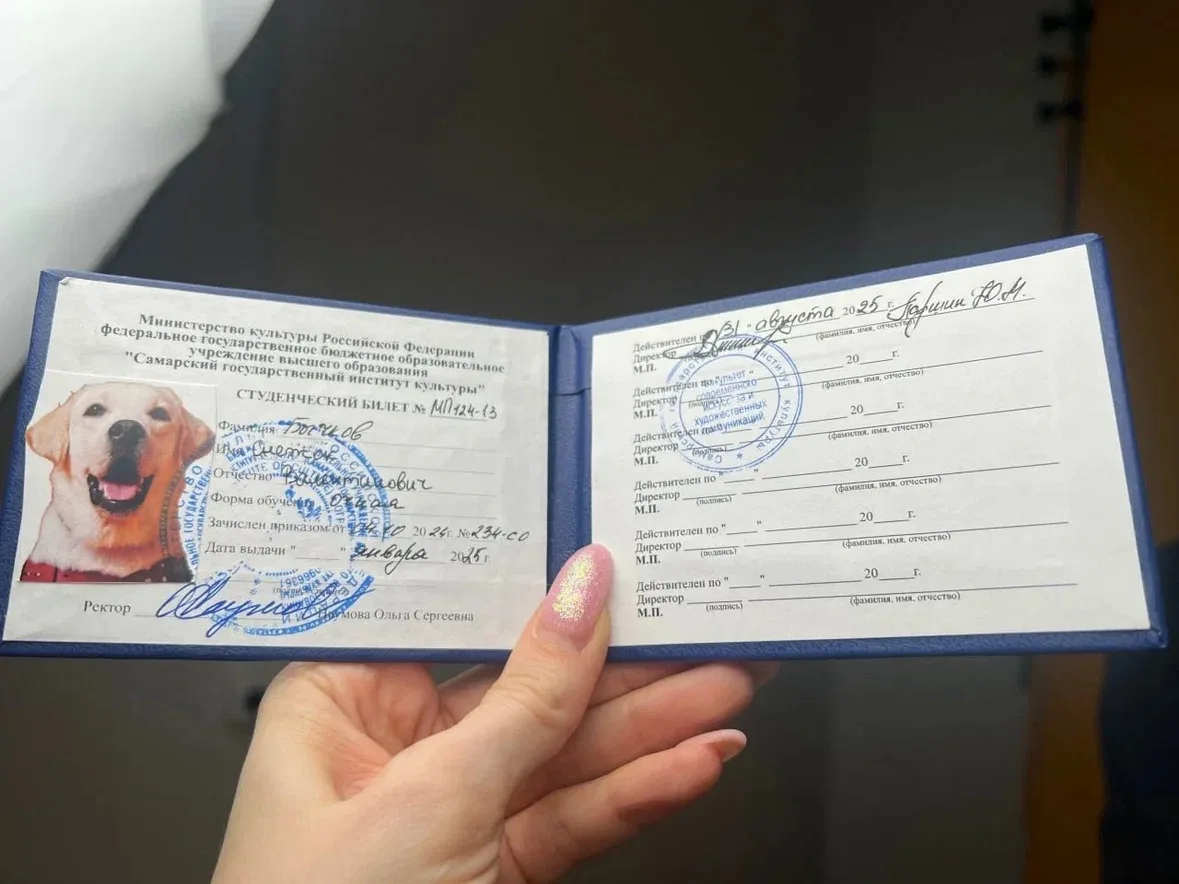 Министерство культуры Российской Федерации
федеральное государственное бюджетное образовательное
учреждение высшего образования
"Самарский государственный институт культуры"
СТУДЕНЧЕСКИЙ БИЛЕТ № МП124-13
Фамилия Бочков
Имя Снежок
Отчество Валентинович
Форма обучения очная
Зачислен приказом от 2024г. №234-со
Дата выдачи " " января 2025г.
Ректор Наумова Ольга Сергеевна
Действителен по "31" августа 2025 г. Паршин Ю.М.
Директор (фамилия, имя, отчество)
М.П.
Действителен по " " 20 г.
Директор (подпись) (фамилия, имя, отчество)
М.П.
Действителен по 20 г.
Директор (подпись) (фамилия, имя, отчество)
М.П.
Действителен по " " 20 г.
Директор (подпись) (фамилия, имя, отчество)
М.П.
Действителен по " " 20 г.
Директор (подпись) (фамилия, имя, отчество)
М.П.
Действителен по " " 20 г.
Директор (подпись) (фамилия, имя, отчество)
М.П.
факультет
современного
искусства и
художественных
коммуникаций